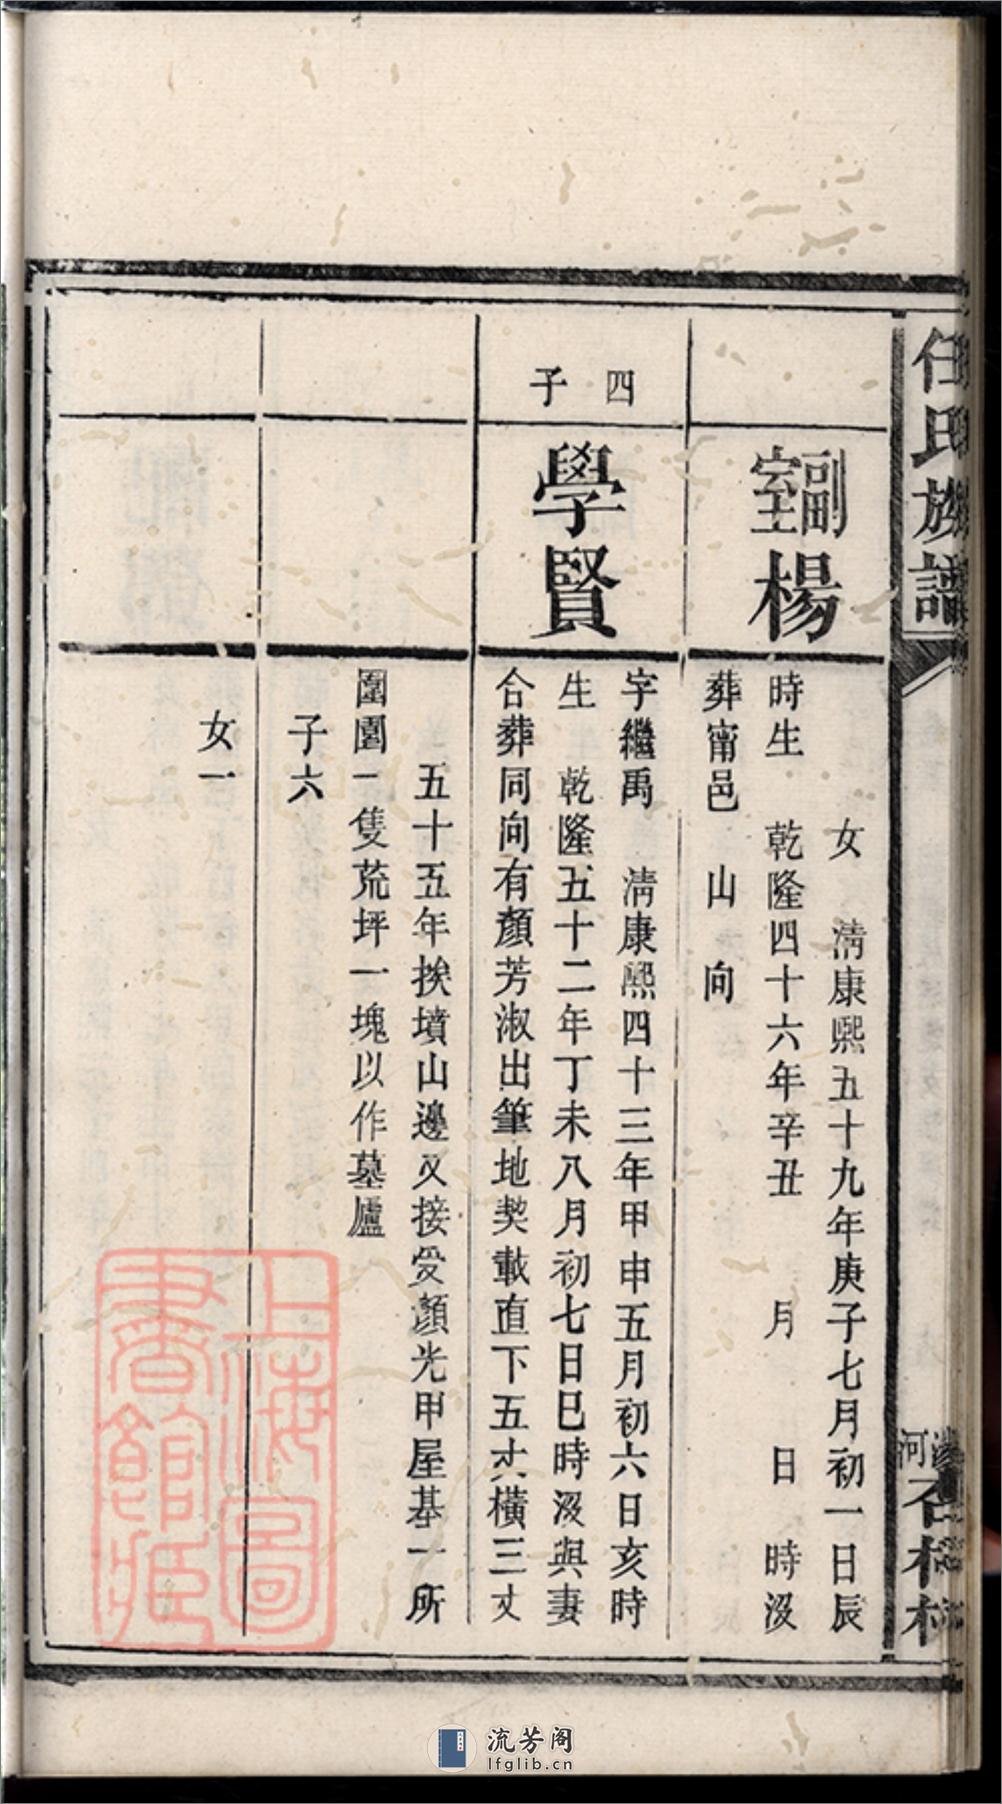 任氏族譜
河
副室楊
女　清康熙五十九年庚子七月初一日辰
時生　乾隆四十六年辛丑　月　日　時沒
葬甯邑　山　向
四子
學賢
字繼禹　清康熙四十三年甲申五月初六日亥時
生　乾隆五十二年丁未八月初七日巳時沒與妻
合葬同向有顏芳淑出筆地契載直下五丈橫三丈
五十五年挨墳山邊又接受顏光甲屋基一所
園一隻荒坪一塊以作墓廬
子六
女一
上海圖書館藏
流芳阁
lfglib.cn